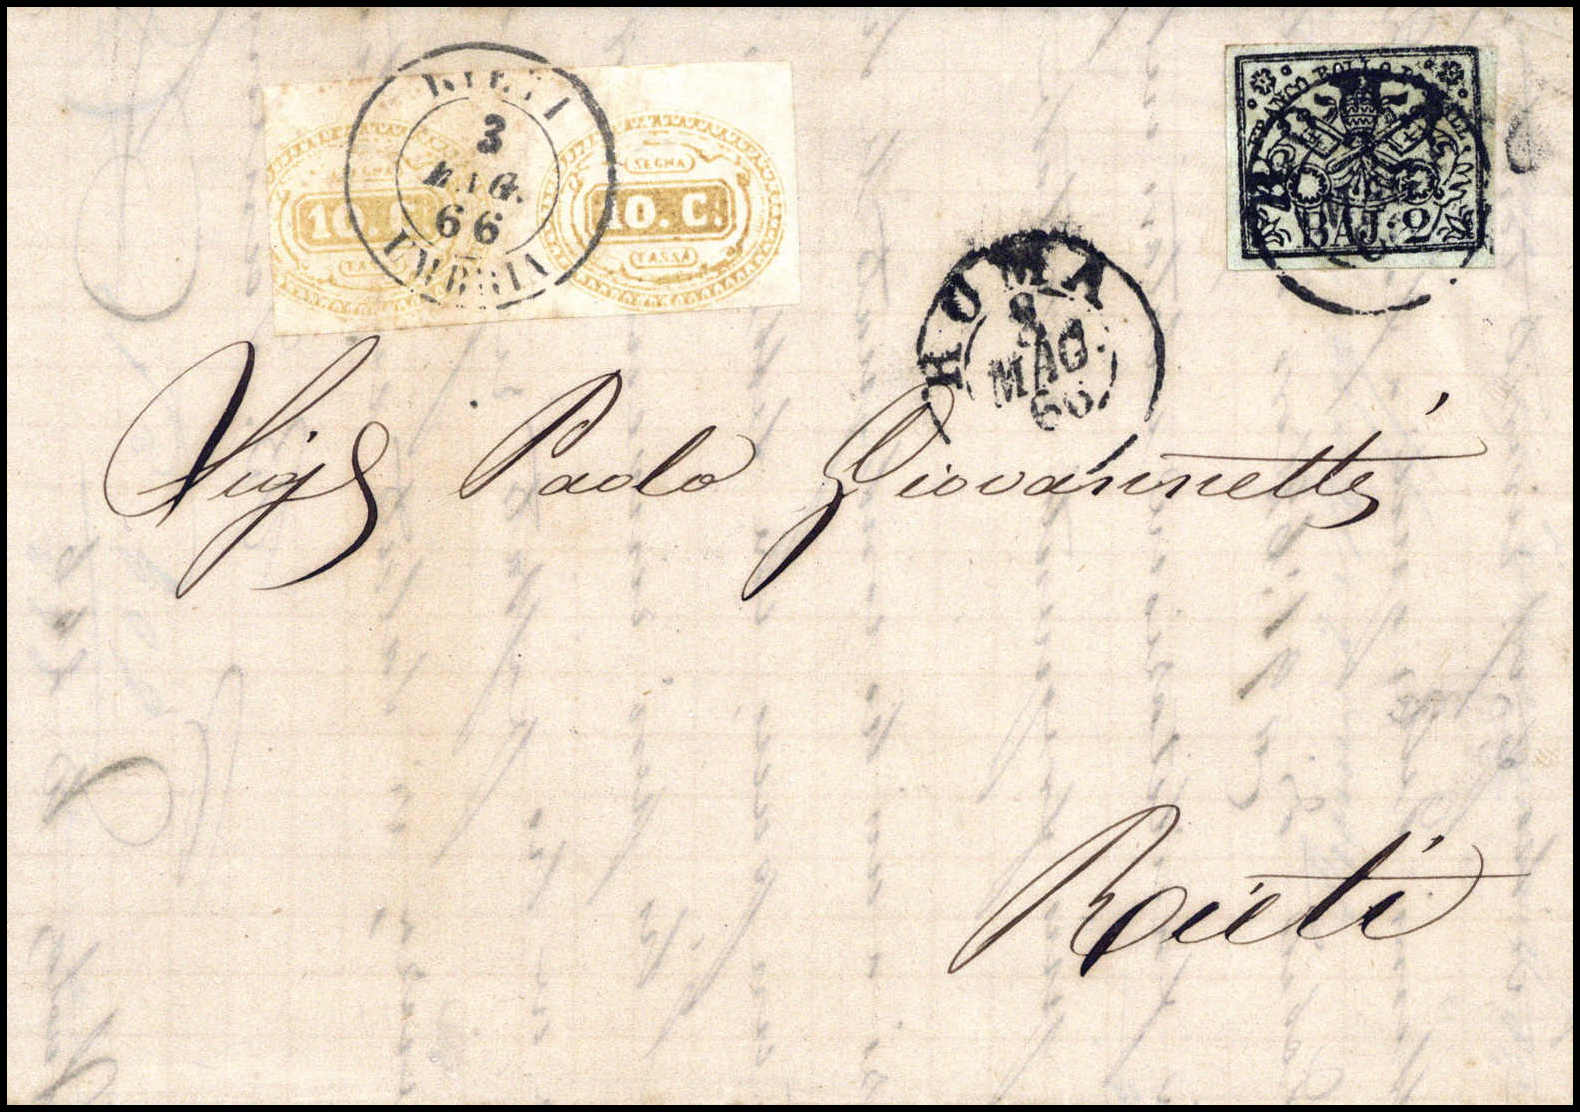 RIETI
3
MAG.
66
UMBRIA
10. C
TASSA
SEGNA
10. C.
TASSA
FRANCO BOLLO POSTALE
BAJ: 2
ROMA
MAG.
66
Sigr Paolo Giovannetti
Rieti